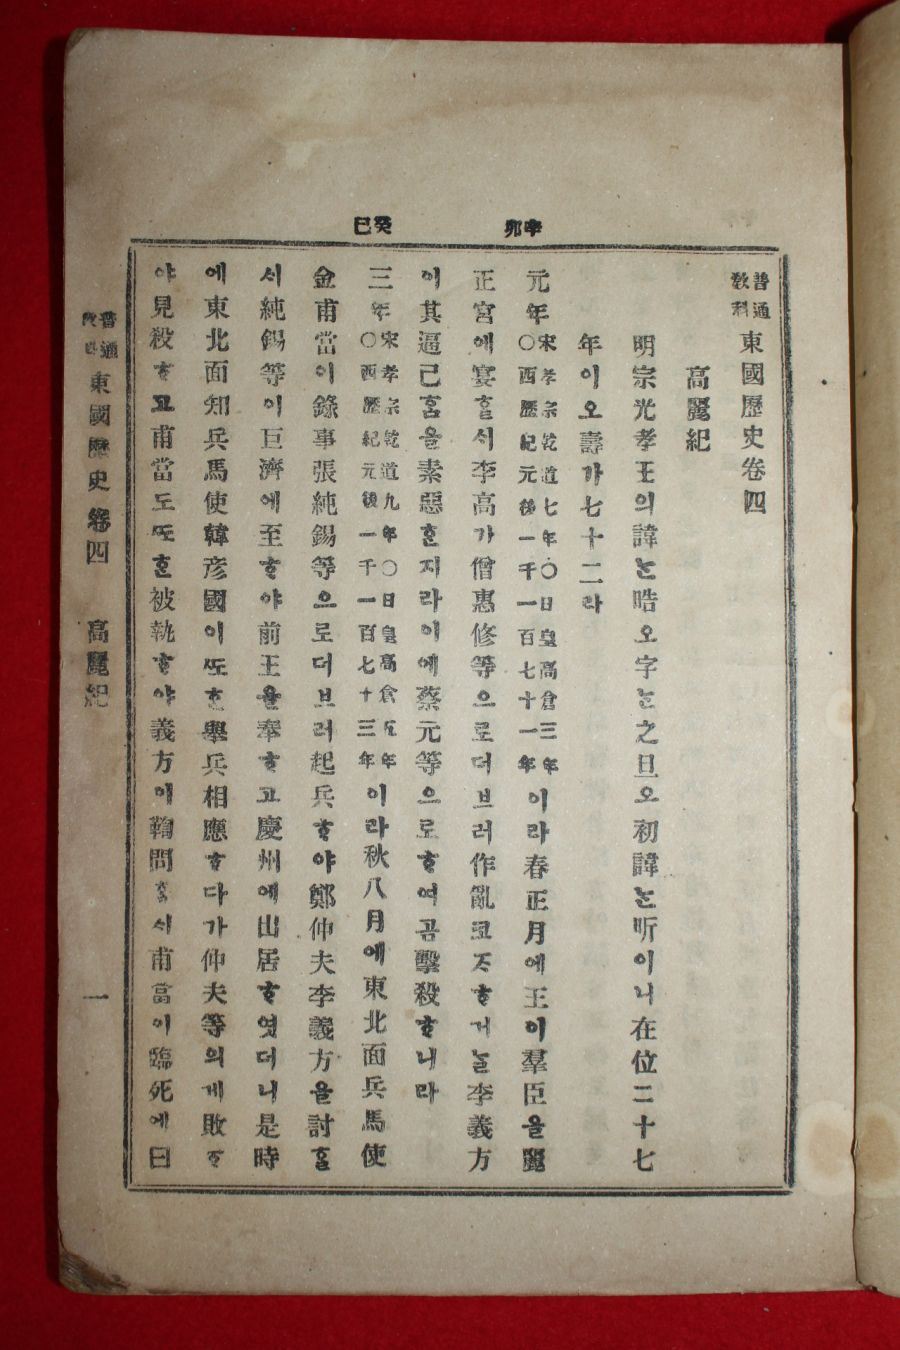 辛卯
癸巳
普通教科 東國歷史卷四
高麗紀
明宗光孝王의諱ᄂᆞᆫ晧오字ᄂᆞᆫ之旦오初諱ᄂᆞᆫ昕이니在位二十七
年이오壽가七十二라
元年宋孝宗乾道七年〇日皇高倉三年〇西歷紀元後一千一百七十一年이라春正月에王이羣臣을麗
正宮에宴ᄒᆞᆯᄉᆡ李高가僧惠修等으로더브러作亂코ᄌᆞᄒᆞ거ᄂᆞᆯ李義方
이其逼己ᄒᆞᆷ을素惡ᄒᆞᆫ지라이에蔡元等으로ᄒᆞ여곰擊殺ᄒᆞ니라
三年宋孝宗乾道九年〇日皇高倉五年〇西歷紀元後一千一百七十三年이라秋八月에東北面兵馬使
金甫當이錄事張純錫等으로더브러起兵ᄒᆞ야鄭仲夫李義方을討ᄒᆞᆯ
ᄉᆡ純錫等이巨濟에至ᄒᆞ야前王을奉ᄒᆞ고慶州에出居ᄒᆞ엿더니是時
에東北面知兵馬使韓彦國이ᄯᅩᄒᆞᆫ擧兵相應ᄒᆞ다가仲夫等의게敗ᄒᆞ
야見殺ᄒᆞ고甫當도ᄯᅩᄒᆞᆫ被執ᄒᆞ야義方이鞫問ᄒᆞᆯᄉᆡ甫當이臨死에曰
普通教科 東國歷史 卷四 高麗紀 一